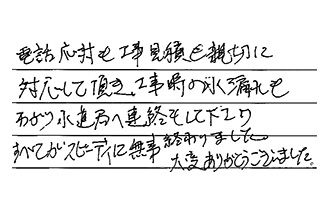 電話応対も工事見積も親切に
対応して頂き、工事時の水漏れも
わかり水道局へ連絡もして下さり
すべてがスピーディに無事終わりました。
大変ありがとうございました。